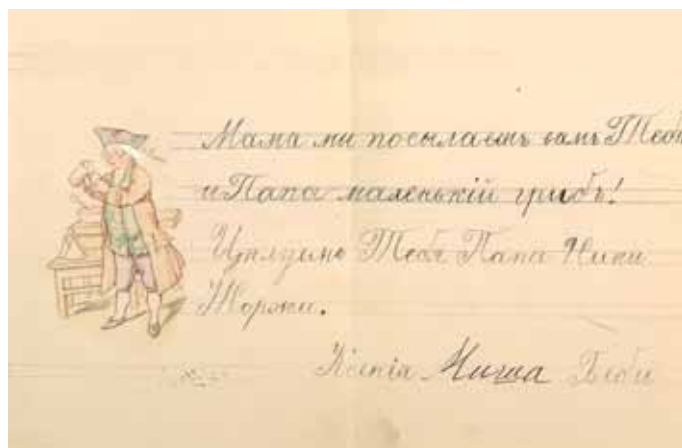 Мама ми посылаемъ вамъ Тебѣ
и Папа маленькій грибъ!
Цѣлуемъ Тебя Папа Ники
Жоржи.
Ксенія Миша Беби